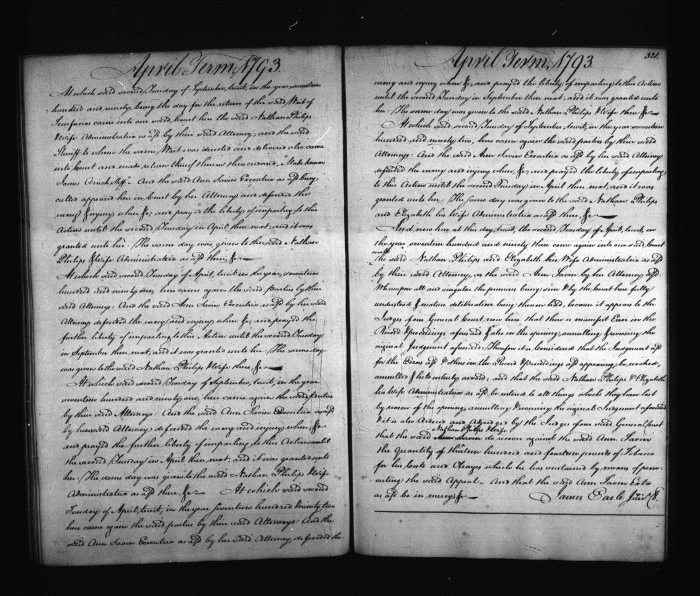 April Term, 1793.
At which said second Tuesday of September, to wit, in the year seventeen
hundred and ninety, being the day for the return of the said Writ of
came into our said Court here the said Nathan Philips
& Wife Administratrix as afsd by their said Attorney, and the said
Sheriff to whom the same Writ was directed and delivered also came
into Court and made return thereof
James And the said Ann Executrix as afsd being
called appeared here in Court by her Attorney and defended the
wrong & injury when &c, and prays the liberty of imparling to this
Action until the second Tuesday in April then next, and it was
granted unto her. The same day was given to the said Nathan
Philips & Wife Administratrix as afsd there, &c
At which said second Tuesday of April, to wit, in the year, seventeen
hundred and ninety one, here came again the said parties by their
said Attorneys. And the said Ann Executrix as afsd by her said
Attorney defended the wrong and injury when &c, and prayed the
further liberty of imparling to this Action until the second Tuesday
in September then next, and it was granted unto her. The same day
was given to the said Nathan Philips & Wife there, &c
At which said second Tuesday of September, to wit, in the year
seventeen hundred and ninety one, here came again the said parties
by their said Attorneys. And the said Ann Executrix as afsd
by her said Attorney defended the wrong and injury when &c
and prayed the further liberty of imparling to this Action until
the second Tuesday in April then next; and it was granted unto
her. The same day was given to the said Nathan Philips & Wife
Administratrix as afsd there &c At which said second
Tuesday of April, to wit, in the year seventeen hundred and ninety two
here came again the said parties by their said Attorneys. And the
said Ann Executrix as afsd by her said Attorney, defended the
April Term, 1793
wrong and injury when &c, and prayed the liberty of imparling to this Action
until the second Tuesday in September then next, and it was granted unto
her. The same day was given to the said Nathan Philips & Wife there &c
At which said second Tuesday of September, to wit, in the year seventeen
hundred and ninety two, here came again the said parties by their said
Attorneys. And the said Ann Executrix as afsd by her said Attorney
defended the wrong and injury when, &c, and prayed the liberty of imparling
to this Action until the second Tuesday in April then next, and it was
granted unto her. The same day was given to the said Nathan Philips
and Elizabeth his Wife Administratrix as afsd there &c
And now here at this day, to wit, the second Tuesday of April, to wit, in
the year seventeen hundred and ninety three came again into our said Court
the said Nathan Philips and Elizabeth his Wife Administratrix as afsd
by their said Attorney, as the said Ann by her Attorney afsd.
Whereupon all and singular the premises being seen & by the Court here fully
understood & mature deliberation being thereon had, because it appears to the
Judges of our General Court now here that there is manifest Error in the
Record & proceedings aforesaid
original Judgment aforesaid. Therefore it is Considered that the Judgment afsd
for the Errors afsd & others in the Record & proceedings afsd appearing, be reversed,
annulled & held entirely as void, and that the said Nathan Philips & Elizabeth
his Wife Administratrix as afsd be restored to all things which they have lost
by reason of the annulling & reversing the original Judgment aforesaid
& it is also Ordered and Adjudged by the Judges of our said General Court
that the said Nathan Philips & Wife do recover against the said Ann
the Quantity of thirteen hundred and fourteen pounds of Tobacco
for his Costs and Charges which he has sustained by means of prosecuting
the said Appeal. And that the said Ann
as afsd be in mercy &c
James Earle Junr Clk